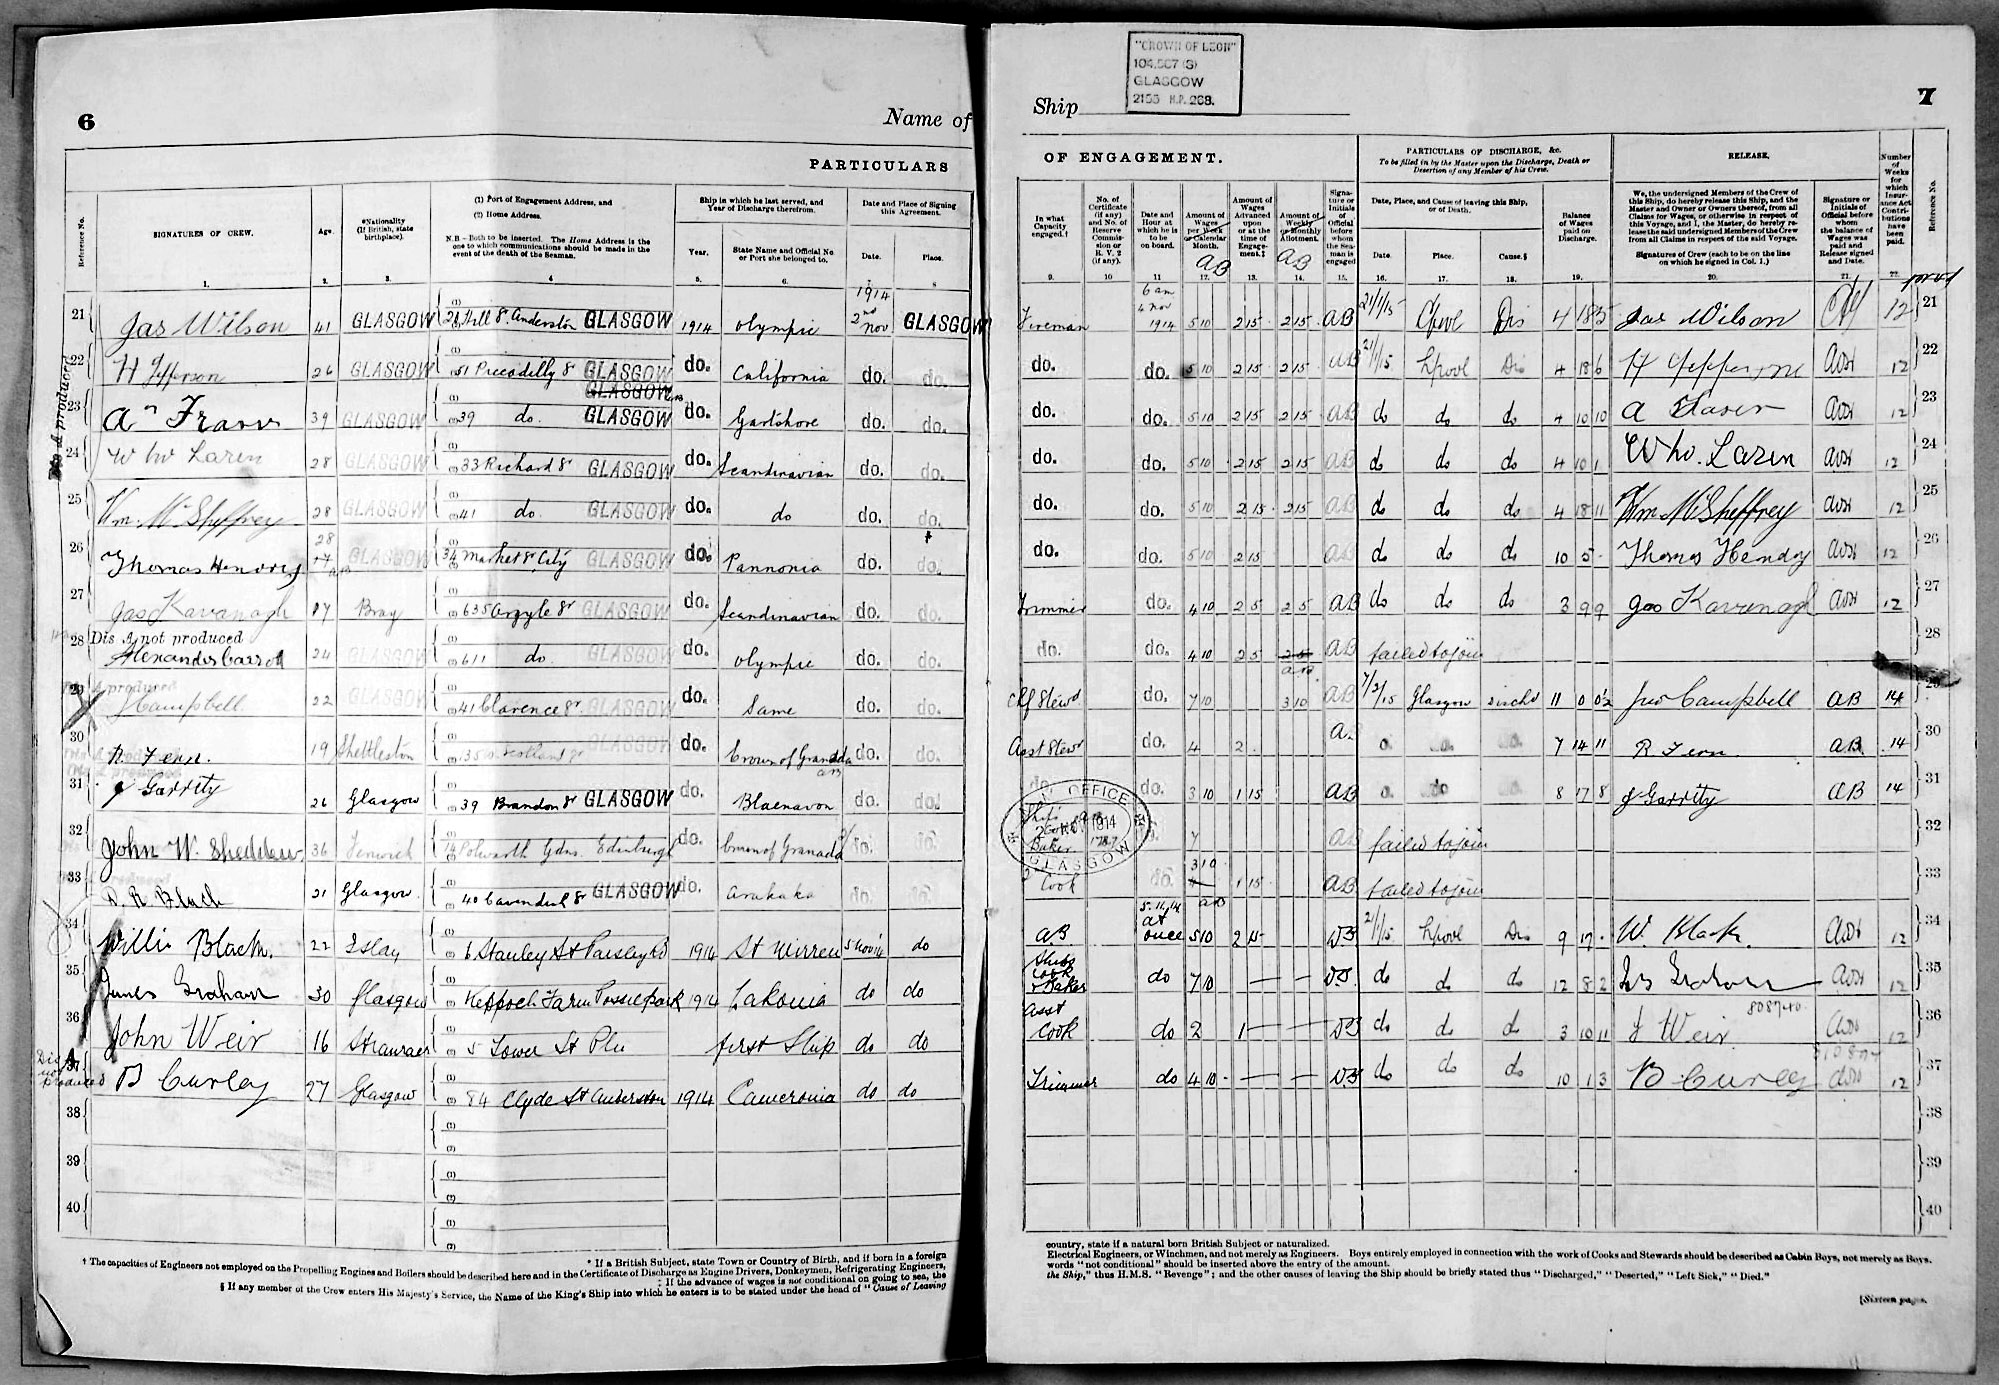 6
Name of
PARTICULARS
Reference No.
SIGNATURES OF CREW.
Age.
*Nationality
(If British, state
birthplace).
(1) Port of Engagement Address, and
(2) Home Address.
N.B - Both to be inserted. The Home Address is the
one to which communications should be made in the
event of the death of the Seaman.
Ship in which he last served, and
Year of Discharge therefrom.
Year.
State Name and Official No.
or Port she belonged to.
Date and Place of Signing
this Agreement.
Date.
Place.
1. 2. 3. 4 5. 6. 8
21 Jas Wilson 41 GLASGOW Hill St Anderston GLASGOW 1914 Olympic 1914 2nd Nov GLASGOW
22 H Jefferson 26 GLASGOW 51 Piccadilly St GLASGOW do. California do. do.
GLASGOW
23 39 GLASGOW 39 do. GLASGOW do. Gartshore do. do.
24 W Laren 28 GLASGOW 33 Richard St GLASGOW do. Scandinavian do. do.
25 Wm. McSheffrey 28 GLASGOW 41 do. GLASGOW do. do do. do.
26 Thomas Hendry 28 GLASGOW 34 Market St City GLASGOW do. Pannonia do. do.
27 Jas Kavanagh Bray 635 Argyle St GLASGOW do. Scandinavian do. do.
Dis A not produced
28 Alexander Carroll 24 GLASGOW 611 do GLASGOW do. Olympic do. do.
29 J Campbell 22 GLASGOW 41 Clarence St GLASGOW do. Same do. do.
30 R Fern. 19 Shettleston GLASGOW do. Crown of Granada do. do.
31 J Garrity 26 Glasgow 39 Brandon St GLASGOW do. Blaenavon do. do.
32 John W. 36 Fenwick 14 Polworth Gdns. Edinburgh do. Crown of Granada do. do.
33 D. R. Black 21 Glasgow. 40 Cavendish St GLASGOW do. Arakaka do. do.
34 Willie Black. 22 Islay 6 Stanley St Paisley Rd 1914 St Mirren 5 Nov 14 do
35 James Graham 30 Glasgow Keppoch Farm Possilpark 1914 Lakonia do do
36 John Weir 16 Stranraer 5 Tower St first Ship do do
Dis A
not
produced
37 B Curley 27 Glasgow 84 Clyde St Anderston 1914 Cameronia do do
38
39
40
* If a British Subject, state Town or Country of Birth, and if born in a foreign
† The capacities of Engineers not employed on the Propelling Engines and Boilers should be described here and in the Certificate of Discharge as Engine Drivers, Donkeymen, Refrigerating Engineers,
‡ If the advance of wages is not conditional on going to sea, the
§ If any member of the Crew enters His Majesty's Service, the Name of the King's Ship into which he enters is to be stated under the head of "Cause of Leaving
"CROWN OF LEON"
104.567 (S)
GLASGOW
2153 H.P. 268.
Ship
7
OF ENGAGEMENT.
PARTICULARS OF DISCHARGE, &c.
To be filled in by the Master upon the Discharge, Death or
Desertion of any Member of his Crew.
RELEASE.
Number
of
Weeks
for
which
Insur-
ance Act
Contri-
butions
have
been
paid.
Reference No.
In what
Capacity
engaged.†
No. of
Certificate
(if any)
and No. of
Reserve
Commis-
sion or
R. V. 2
(if any).
Date and
Hour at
which he is
to be
on board.
Amount of
Wages
per Week
or Calendar
Month.
Amount of
Wages
Advanced
upon
or at the
time of
Engage-
ment.‡
Amount of
Weekly
or Monthly
Allotment.
Signa-
ture or
Initials
of
Official
before
whom
the Sea-
man is
engaged
Date, Place, and Cause of leaving this Ship,
or of Death.
Date.
Place.
Cause.§
Balance
of Wages
paid on
Discharge.
We, the undersigned Members of the Crew of
this Ship, do hereby release this Ship, and the
Master and Owner or Owners thereof, from all
Claims for Wages, or otherwise in respect of
this Voyage, and I, the Master, do hereby re-
lease the said undersigned Members of the Crew
from all Claims in respect of the said Voyage.
Signatures of Crew (each to be on the line
on which he signed in Col. 1.)
Signature or
Initials of
Official before
whom
the balance of
Wages was
paid and
Release signed
and Date.
AB AB
9. 10 11 12. 13. 14. 15. 16. 17. 18. 19. 20. 21. 22.
Fireman 6 am 4 Nov 1914 5 10 2 15 2 15 AB 21/1/15 Lpool Dis 4 18 5 Jas Wilson 12 21
do. do. 5 10 2 15 2 15 AB 21/1/15 Lpool Dis 4 18 6 12 22
do. do. 5 10 2 15 2 15 AB do do do 4 10 10 12 23
do. do. 5 10 2 15 2 15 AB do do do 4 10 1 Laren 12 24
do. do. 5 10 2 15 2 15 AB do do do 4 18 11 Wm McSheffrey 12 25
do. do. 5 10 2 15 AB do do do 10 5 - Thomas Hendry 12 26
Trimmer do. 4 10 2 5 2 5 AB do do do 3 9 9 Jas Kavanagh 12 27
do. do. 4 10 2 5 2 5 AB failed to join 28
Chf Stewd. do. 7 10 3 10 AB 7/2/15 Glasgow dischd 11 0 Campbell AB 14 29
Asst Stewd do. 4 2 7 14 11 R Fern AB 14 30
do. do. 3 10 1 15 AB 8 17 8 J Garrity AB 14 31
Ship's Cook Baker 7 AB failed to join 32
OFFICE
2 NOV 1914
GLASGOW
Cook 3 10 1 15 AB failed to join 33
AB 5.11.14 at once 5 10 2 15 21/1/15 Lpool Dis 9 17 - W. Black. 12 34
Ships Cook & Baker do 7 10 — — do do do 12 8 2 12 35
808740
Asst Cook do 2 1 — — do do do 3 10 11 J Weir. 12 36
Trimmer do 4 10 - — — do do do 10 1 3 B Curley 12 37
38
39
40
country, state if a natural born British Subject or naturalized.
Electrical Engineers, or Winchmen, and not merely as Engineers. Boys entirely employed in connection with the work of Cooks and Stewards should be described as Cabin Boys, not merely as Boys.
words "not conditional" should be inserted above the entry of the amount.
the Ship," thus H.M.S. "Revenge"; and the other causes of leaving the Ship should be briefly stated thus "Discharged," "Deserted," "Left Sick," "Died."
[Sixteen pages.